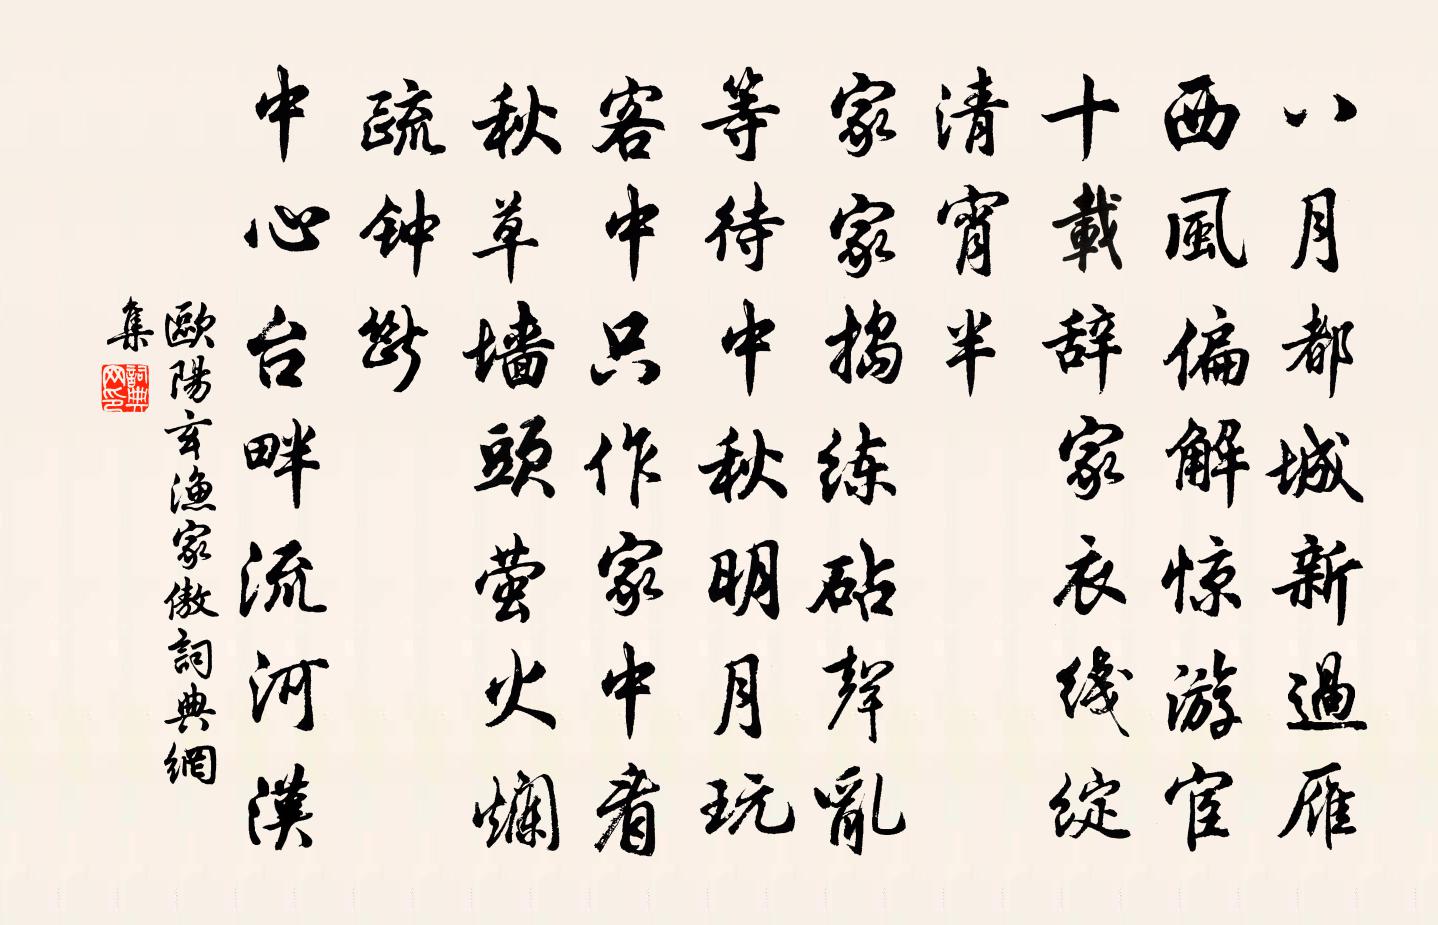 八月都城新過雁
西風偏解惊游宦
十載辞家衣线绽
清宵半
家家搗练砧聲亂
等待中秋明月玩
客中只作家中看
秋草墙頭萤火爛
疏钟斷
中心台畔流河漢
歐陽玄漁家傲詞典網
集
詞典
网印